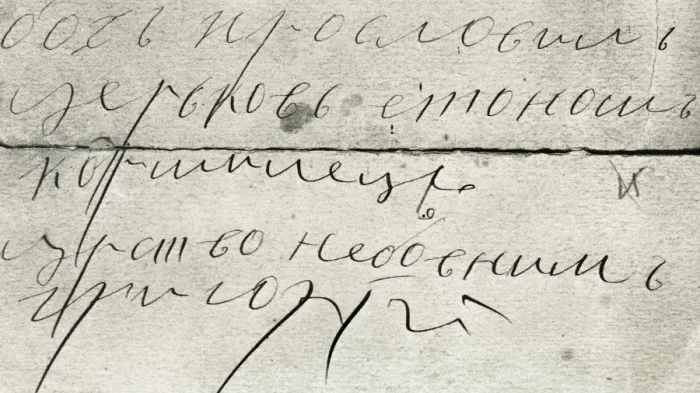 богъ прославилъ
церьковь ето нашъ
кормилецъ
царство небовнимъ
григорий